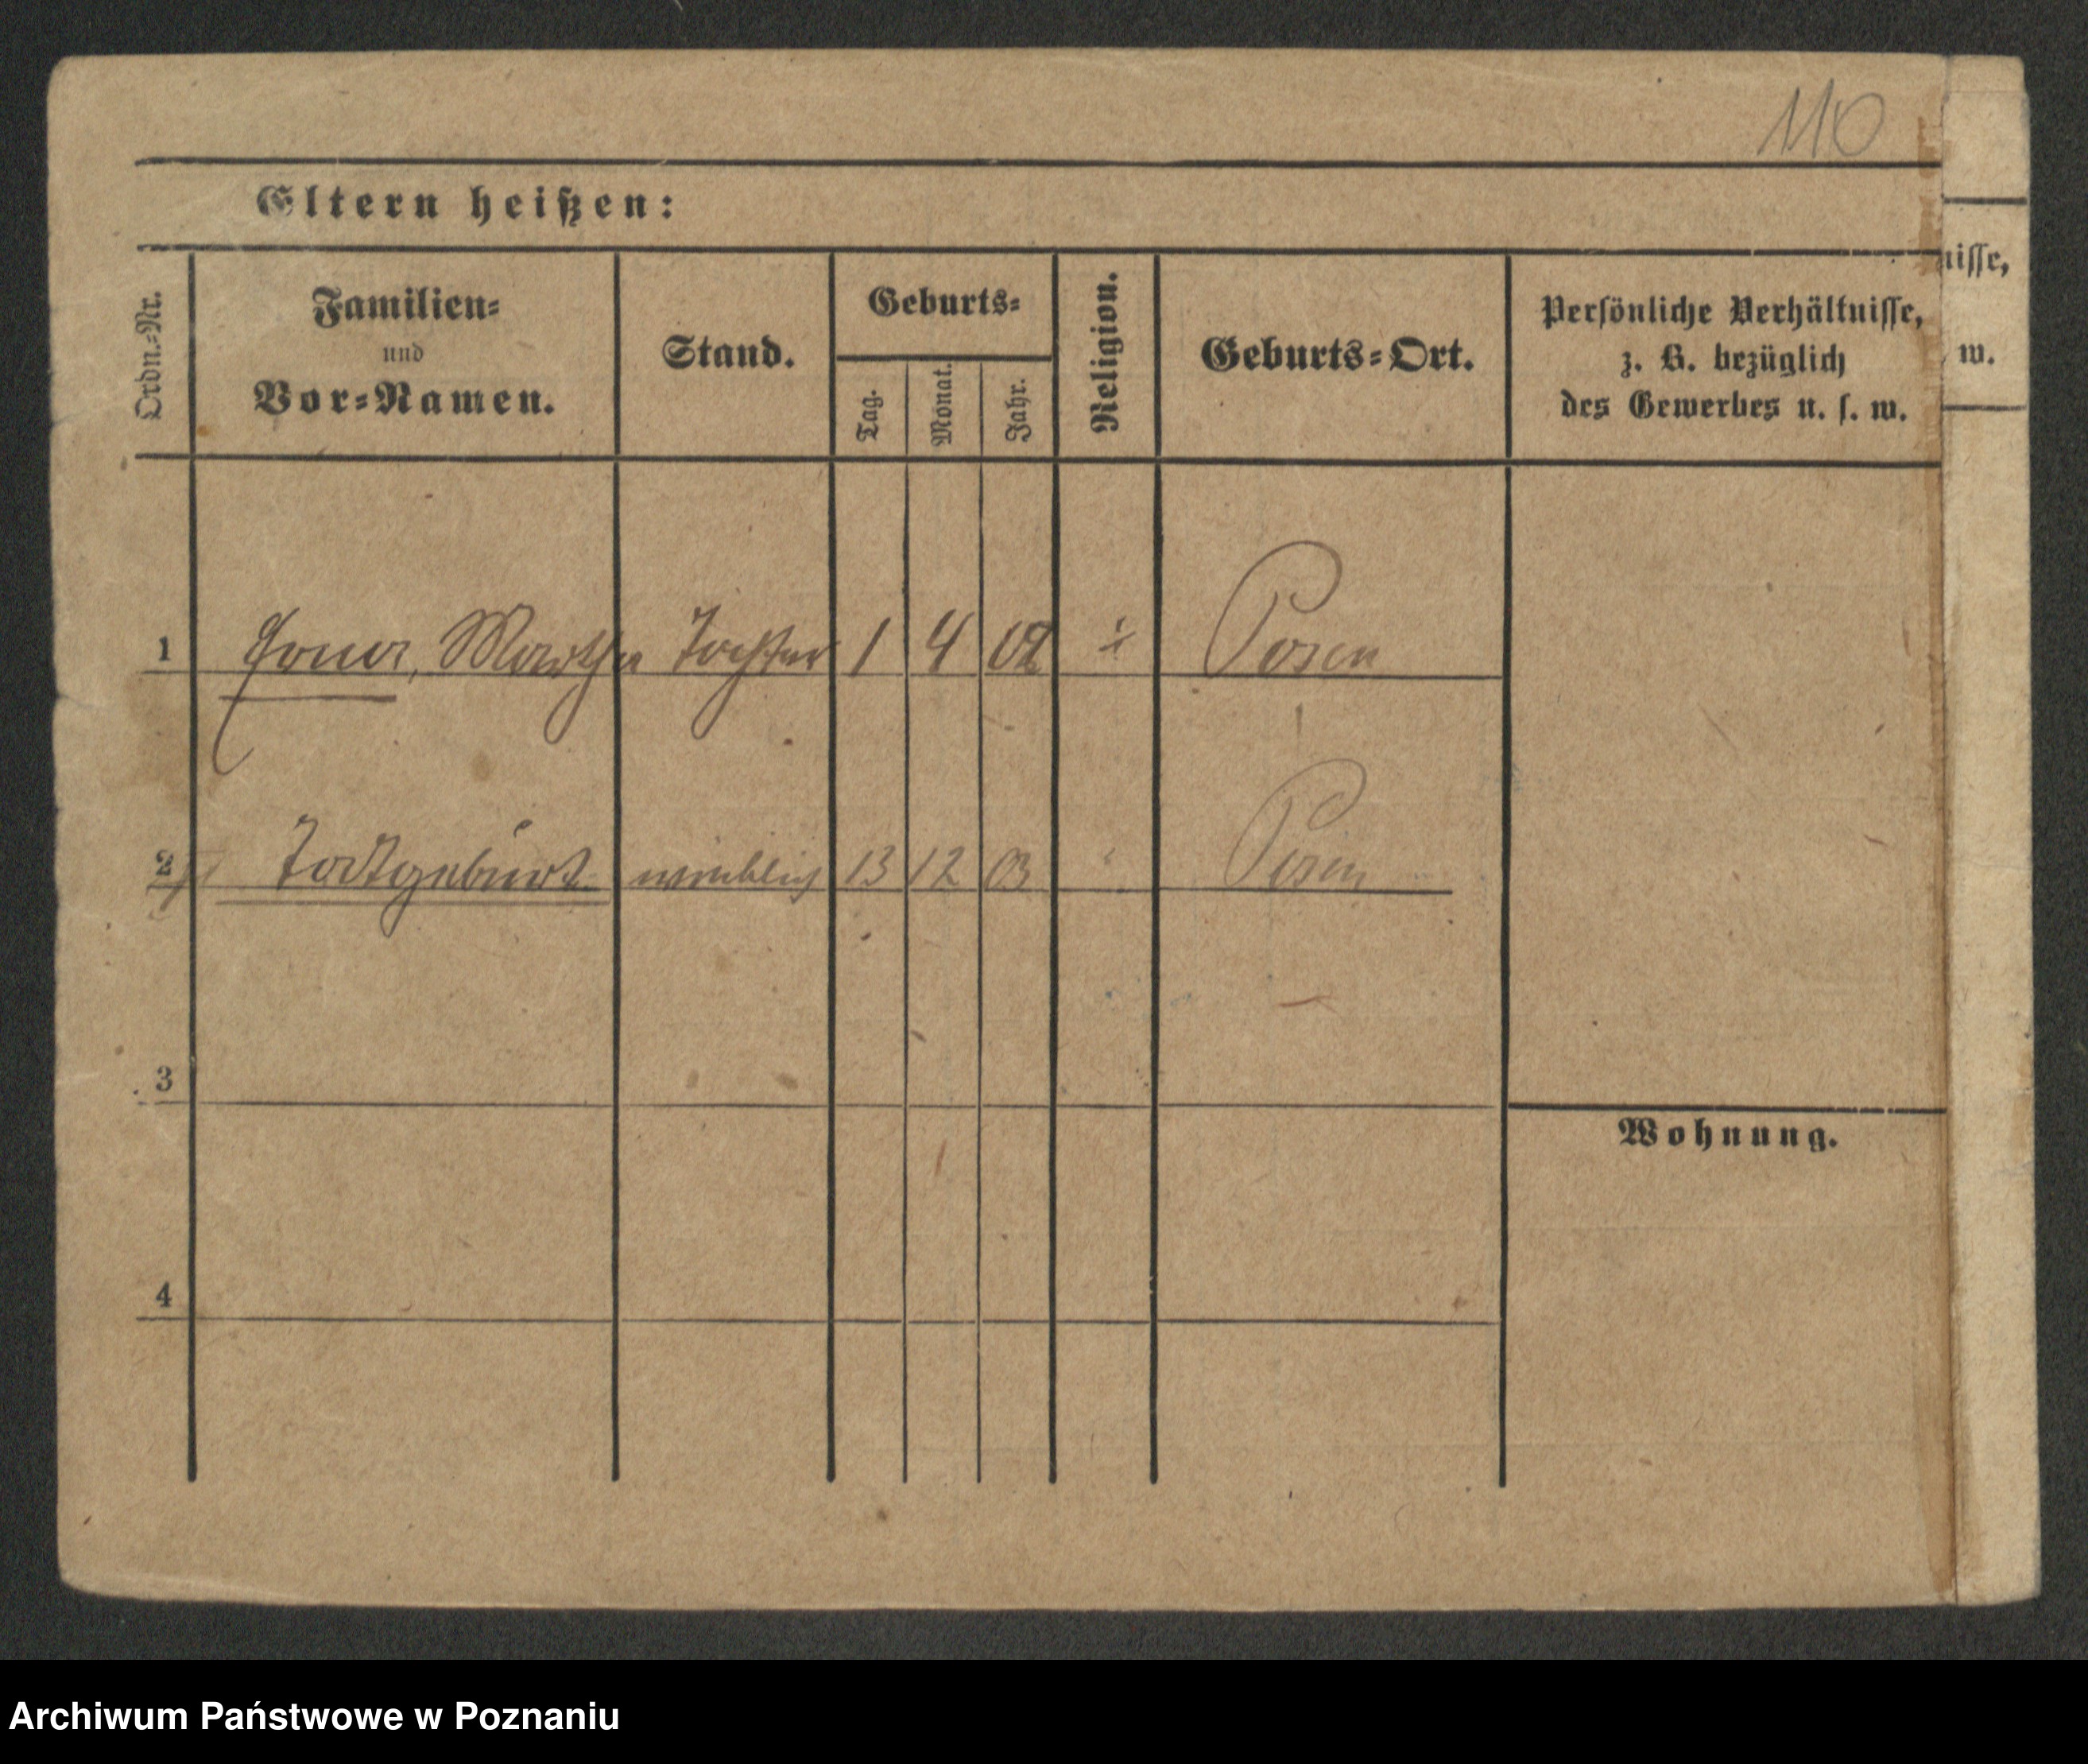 110
Eltern heißen:
Ordn.-Nr.
Familien-
und
Vor-Namen.
Stand.
Geburts-
Tag.
Monat.
Jahr.
Religion.
Geburts-Ort.
Persönliche Verhältnisse,
z. B. bezüglich
des Gewerbes u. s. w.
nisse,
w.
1 Martha Tochter 1 4 02 Posen
2 Todtgeburt weiblich 13 12 03 " Posen
3
4
Wohnung.
Archiwum Państwowe w Poznaniu